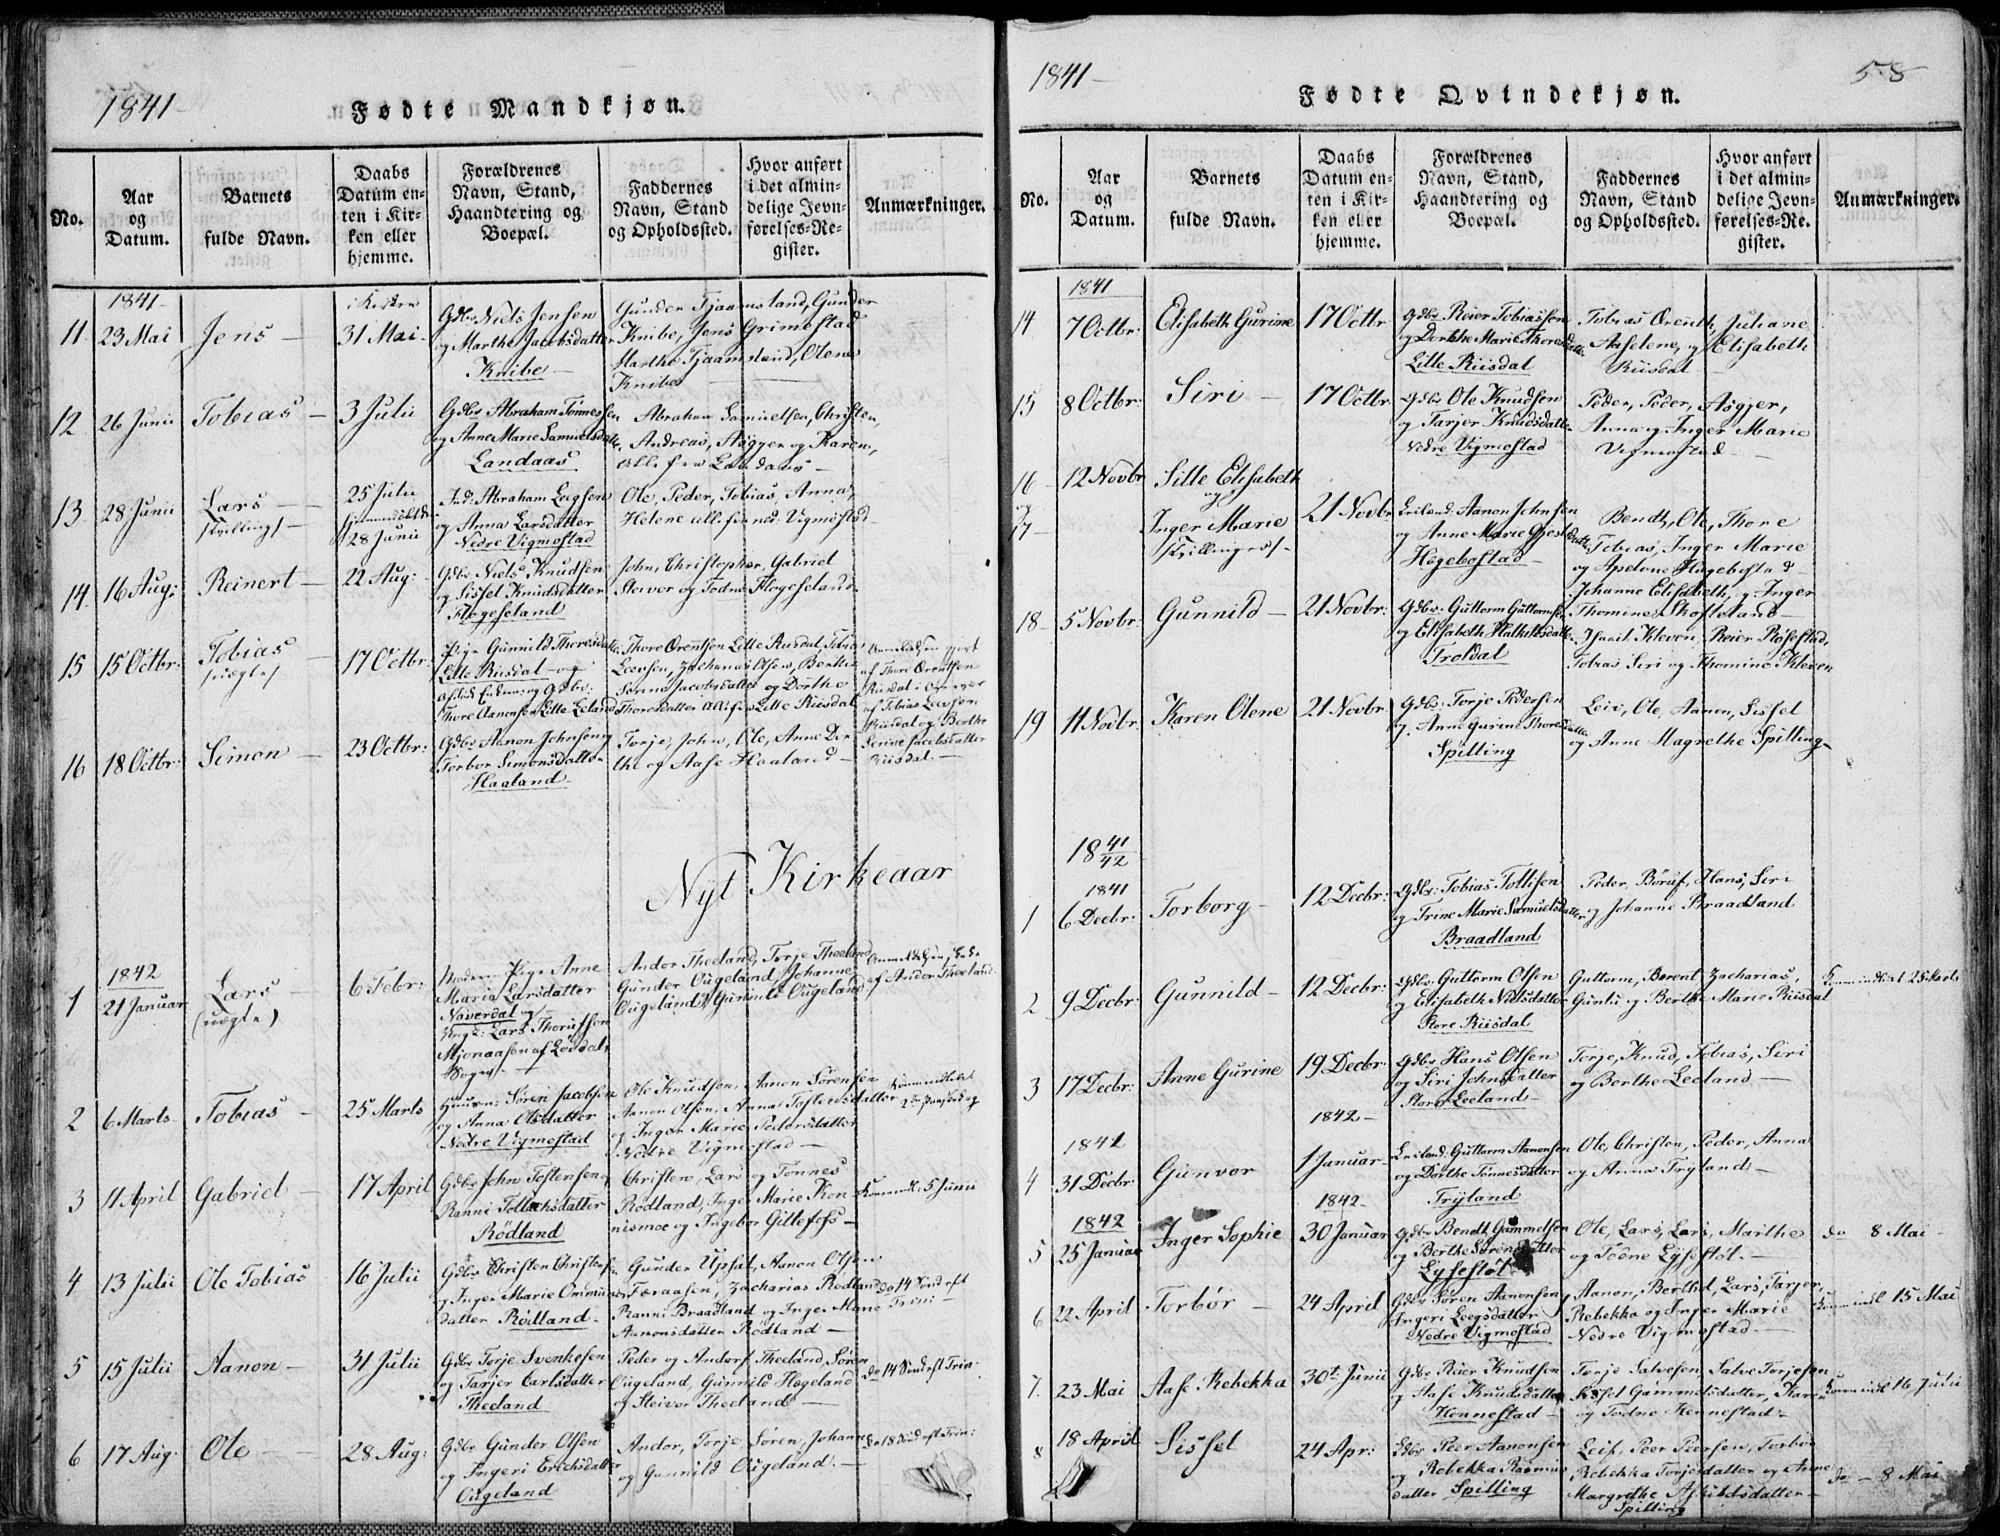 1841-
Fødte Mandkjøn.
No.
Aar
og
Datum.
Barnets
fulde Navn.
Daabs
Datum en-
ten i Kir-
ken eller
hjemme.
Forældrenes
Navn, Stand,
Haandtering og
Boepæl.
Faddernes
Navn, Stand
og Opholdssted.
Hvor anført
i det almin-
delige Jevn-
førelses-Re-
gister.
Anmærkninger.
1841-
11 23 Mai Jens - i Kirken
31 Mai - Gdbr Niels Jensen
og Marthe Jacobsdatter
Knibe - Gunder Tjaamsland, Gunder
Knibe, Jens Grimestad
Marthe Tjaamsland, Olene
Knibe
12 26 Junii Tobias - 3 Julii Gdbr Abraham Tønnessen
og Anne Marie Samuelsdatter
Landaas Abraham Samuelsen, Christen,
Andreas, Asgjer og Karen,
alle fra Landaas -
13. 28 Junii Lars -
25 Julii
28 Junii Ind: Abraham Leegsen
og Anna Larsdatter
Nedre Vigmostad Ole, Peder, Tobias, Anna,
Helene alle fra ned: Vigmostad
14. 16 Aug: Reinert - 22 Aug: Gdbr Niels Knudsen
og Sissel Knudsdatter
Flogeseland John, Christopher, Gabriel
Steivor og Todne Flogeseland
15 15 Octbr: Tobias
(uægte) 17 Octbr Pige Gunnild Thoresdatter
Lille Riisdal - og
Thore Aanonsen Lille Leland Thore Orentsen Lille Riisdal, Tobias
Leevsen, Zacharias Olsen, Berthe
Serina Jacobsdatter og Dorthe
Thoresdatter alle fra Lille Riisdal Anmeldelsen gjort
af Thore Orentsen
Riisdal
af Tobias Leevsen
Riisdal og Berthe
Serine Jacobsdatter
Riisdal -
16 18 Octbr: Simon - 23 Octbr: Gdbr Aanon Johnsen og
Torbor Simonsdatter
Haaland Torje, John, Ole, Anne Dor-
the og Aase Haaland -
Nyt Kirkeaar
1842
1 21 Januar Lars -
(uægte) 6 Febr: Moderen Pige Anne
Maria Larsdatter
Naverdal og
Ungk: Lars Thorufsen
Mjonaasen af Løvdals
Sogn - Andor Theeland, Torje Theeland
Gunder Ougeland, Johanne
Ougeland, Gunnild Ougeland Anmeldelsen skede
af Andor Theeland
2 6 Marts Tobias - 25 Marts Huusm: Søren Jacobsen
og Anna Olsdatter
Nedre Vigmostad Ole Knudsen, Aanon Sørensen
Aanon Olsen, Anna Tostensdatter
og Inger Marie Pedersdatter
Nedre Vigmostad -
3 11 April Gabriel - 17 April Gdbr John Tostensen,
Ranni Tollaksdatter
Rødland Christen, Lars og Tønnes
Rødland, Inger Marie Kon-
nismoe og Ingebor Gittefoss - 5 Junii
4 13 Julii Ole Tobias 16 Julii Gdbr Christen Christensen
og Inger Marie Ommunds
datter Rødland - Gunder Upsal, Aanon Olsen
Færaasen, Zacharias Rødland
Ranni Braadland og Inger Marie
Aanonsdatter Rødland - do 14 Sond eft
Trin: -
5 15 Julii Aanon - 31 Julii Gdbr Torje Svenkesen
og Tarjer Carlsdatter
Theeland Peder og Andor Theeland, Søren
Ougeland, Gunnild Hogeland
og Steivor Theeland - do 14 Sond eft Trin:
6 17 Aug: Ole - 28 Aug: Gdbr Gunder Olsen
og Ingeri Erichsdatter
Ougeland Andor, Torje, Søren, Johanne
og Gunnild Ougeland. - do 18 Sond eft Trin:
1841-
58
Fødte Qvindekjøn.
No.
Aar
og
Datum.
Barnets
fulde Navn.
Daabs
Datum en-
ten i Kir-
ken eller
hjemme.
Forældrenes
Navn, Stand,
Haandtering og
Boepæl.
Faddernes
Navn, Stand
og Opholdssted.
Hvor anført
i det almin-
delige Jevn-
førelses-Re-
gister.
Anmærkninger.
1841
14 7 Octbr: Elisabeth Gurine 17 Octbr Gdbr Reier Tobiassen
og Dorthe Marie Thoresdatter
Lille Riisdal Tobias Orenth, Juliane
Aaselene, og Elisabeth
Riisdal -
15 8 Octbr: Siri - 17 Octbr. Gdbr Ole Knudsen
og Tarjer Knudsdatter
Nedre Vigmostad Peder, Peder, Asgjer,
Anna og Inger Marie
Vigmostad -
16
og
17 12 Novbr Sille Elisabeth
og
Inger Marie
21 Novbr Leiland: Aanon Johnsen
og Anne Marie
Høgebostad - Bendt, Ole, Thore
Tobias, Inger Marie
og Apelone Høgebostad -
18 5 Novbr: Gunnild - 21 Novbr: Gdbr: Guttorm Guttormsen
og Elisabeth
Troldal Johanne Elisabeth, og Inger
Thomine Skofteland -
Kleven, Reier Rosestad,
Tobias Siri og Thomine Kleven
19 11 Novbr: Karen Olene 21 Novbr. Gdbr: Torje Pedersen
og Anne Gurine Thoresdatter
Spilling Leiv, Ole, Aanon, Sissel
og Anne Magrethe Spilling -
18 41/42
1841
1 6 Decbr: Torborg - 12 Decbr: Gdbr: Tobias Tollisen
og Trine Marie Samuelsdatter
Braadland Peder, Børuf, Hans, Siri
og Johanne Braadland
2 9 Decbr: Gunnild - 12 Decbr: Gdbr: Guttorm Olsen
og Elisabeth Nielsdatter
Store Riisdal Guttorm, Berent Zacharias,
og Berthe Marie Riisdal 25 Marts
3 17 Decbr: Anne Gurine 19 Decbr: Gdbr Hans Olsen
og Siri Johnsdatter
Store Leeland - Torje, Knud, Tobias, Siri
og Berthe Leeland -
1842 -
1842
4 31 Decbr: Gunvor - 1 Januar - Leiland: Guttorm Aanonsen
og Dorthe Tønnesdatter
Tryland Ole, Christen, Peder, Anna
og Anna Tryland -
1842.
1842
5 25 Januar Inger Sophie 30 Januar Gdbr Bendt Gammelsen
og Berthe Sørensdatter
Lysestøl Ole, Lars, Lars, Marthe
og Todne Lysestøl. - do 8 Mai -
6 22 April Torbør - 24 April Gdbr Søren Aanonsen
Ingeri Leegsdatter
Nedre Vigmostad Aanon, Berthe, Lars, Tarjer,
Rebekka og Inger Marie
Nedre Vigmostad - 15 Mai
7. 23 Mai Aase Rebekka 30t Junii Gdbr Reier Knudsen
og Aase Knudsdatter
Hennestad - Torje Salvesen, Salve Torjesen
Sissel Gammelsdatter, Karen
og Todne Hennestad - 16 Julii
8 18 April Sissel 24 Apr: Gdbr Peer Aanonsen
og Rebekka Rasmus
datter Spilling Leif, Peer Peersen, Torbor
Rebekka Torjesdatter og Anne
Margrethe Askildsdatter -
Spilling do - 8 Mai